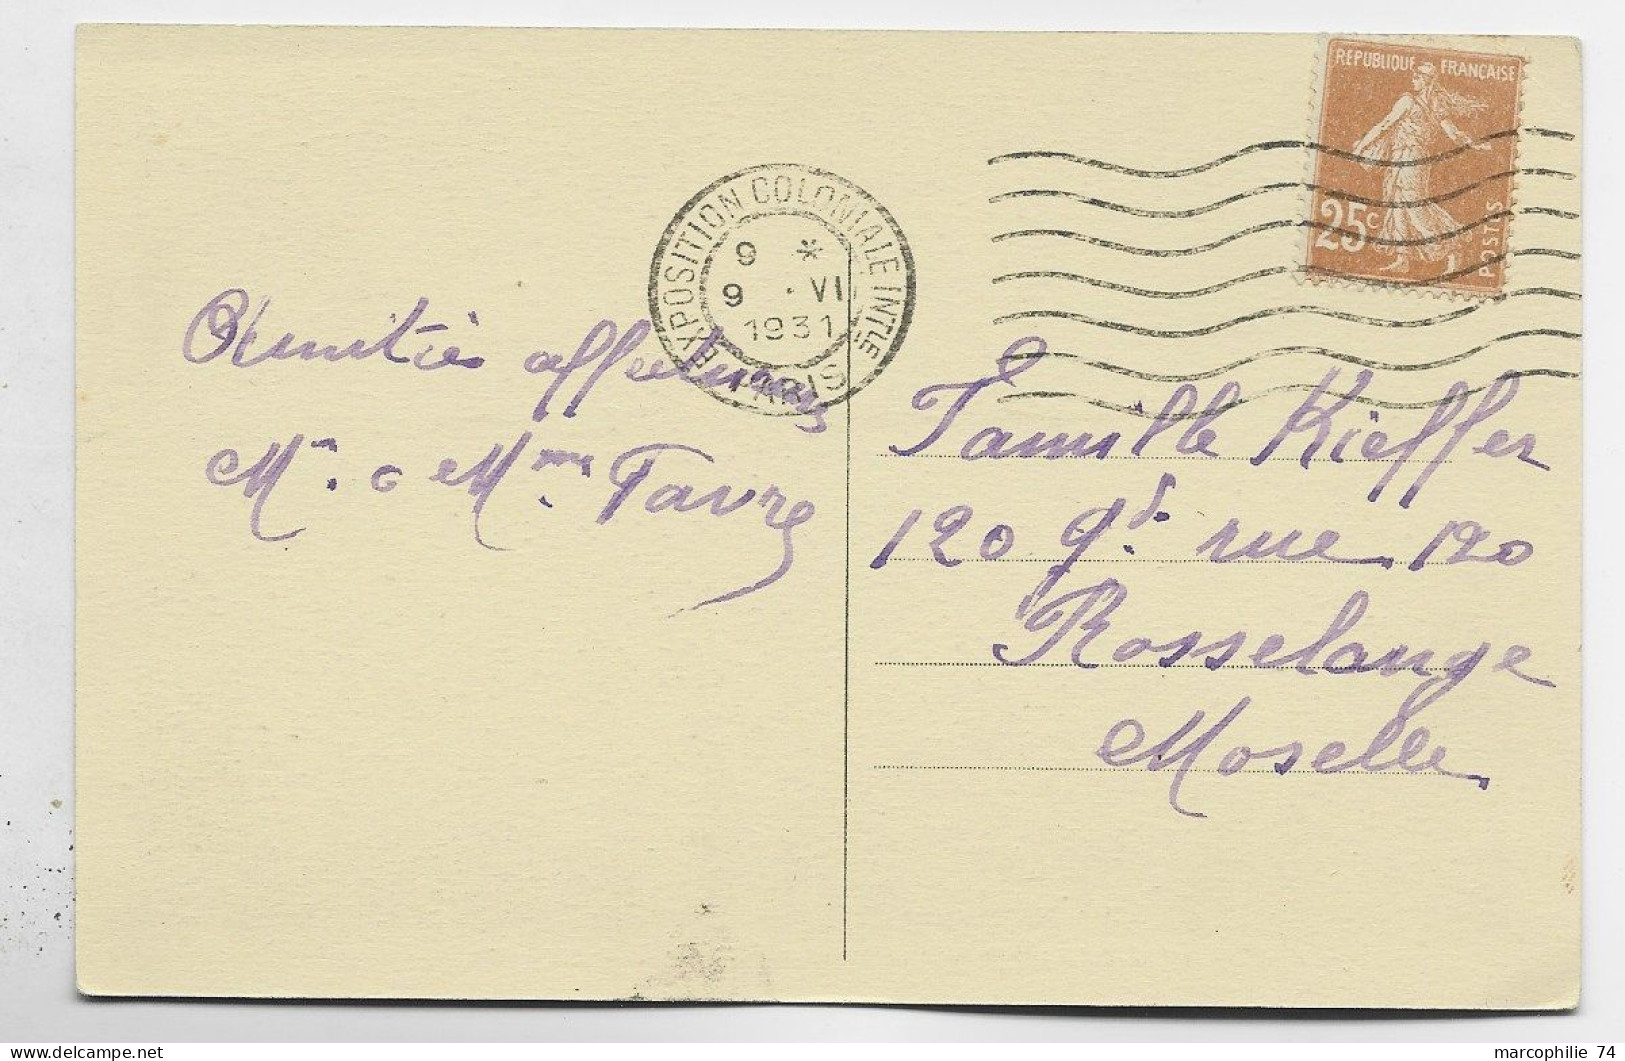 REPUBLIQUE FRANÇAISE
25c
POSTES
EXPOSITION COLONIALE INTLE
9 *
9 . VI
1931
PARIS
Amitiés affectueuses
Mr. & Mme Favre
Famille Kieffer
120 gde. rue 120
Rosselange
Moselle
marcophilie 74